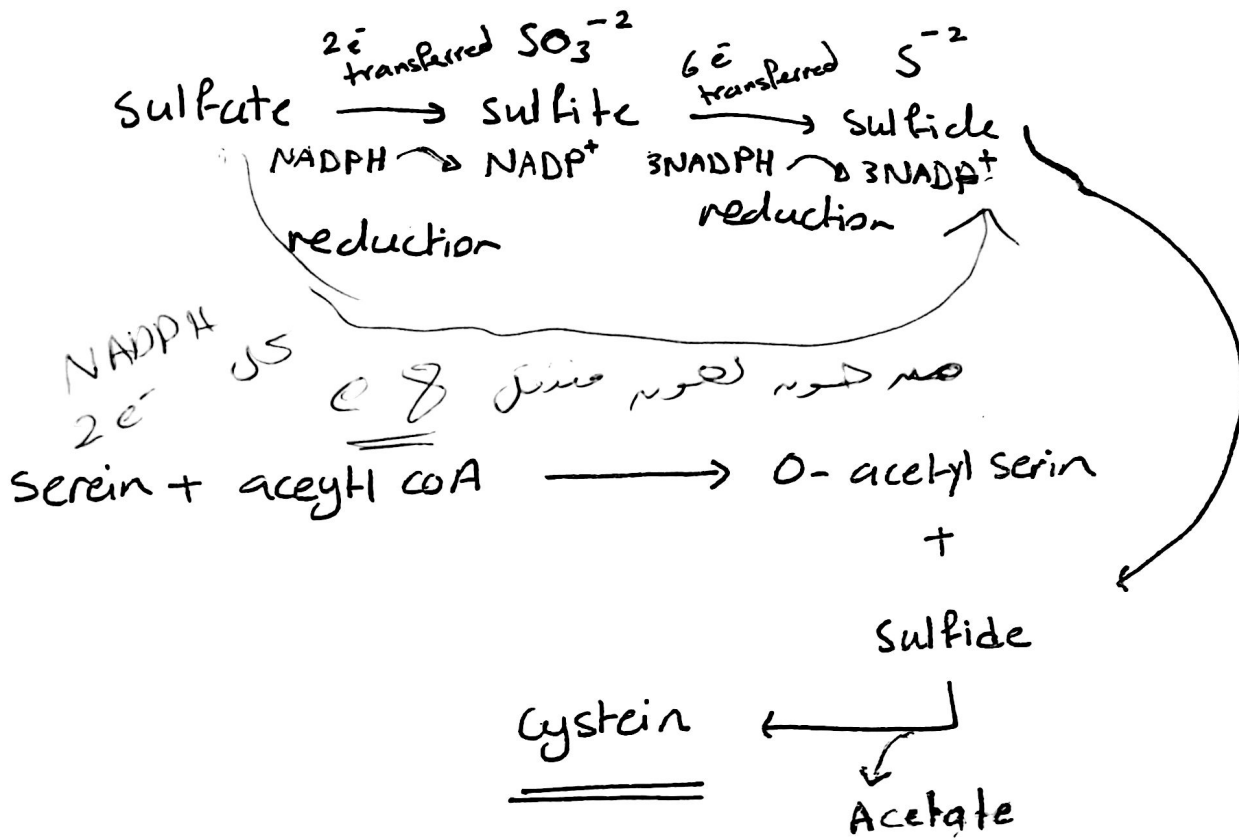 2ē transferred SO₃⁻² 6ē transferred S⁻²
sulfate → sulfite → sulfide
NADPH → NADP⁺ 3NADPH → 3NADP⁺
reduction reduction
NADPH كل
2ē
من هون لهون مننقل 8 e
serein + aceytl coA → O- acetyl serin
+
sulfide
cystein ←
Acetate